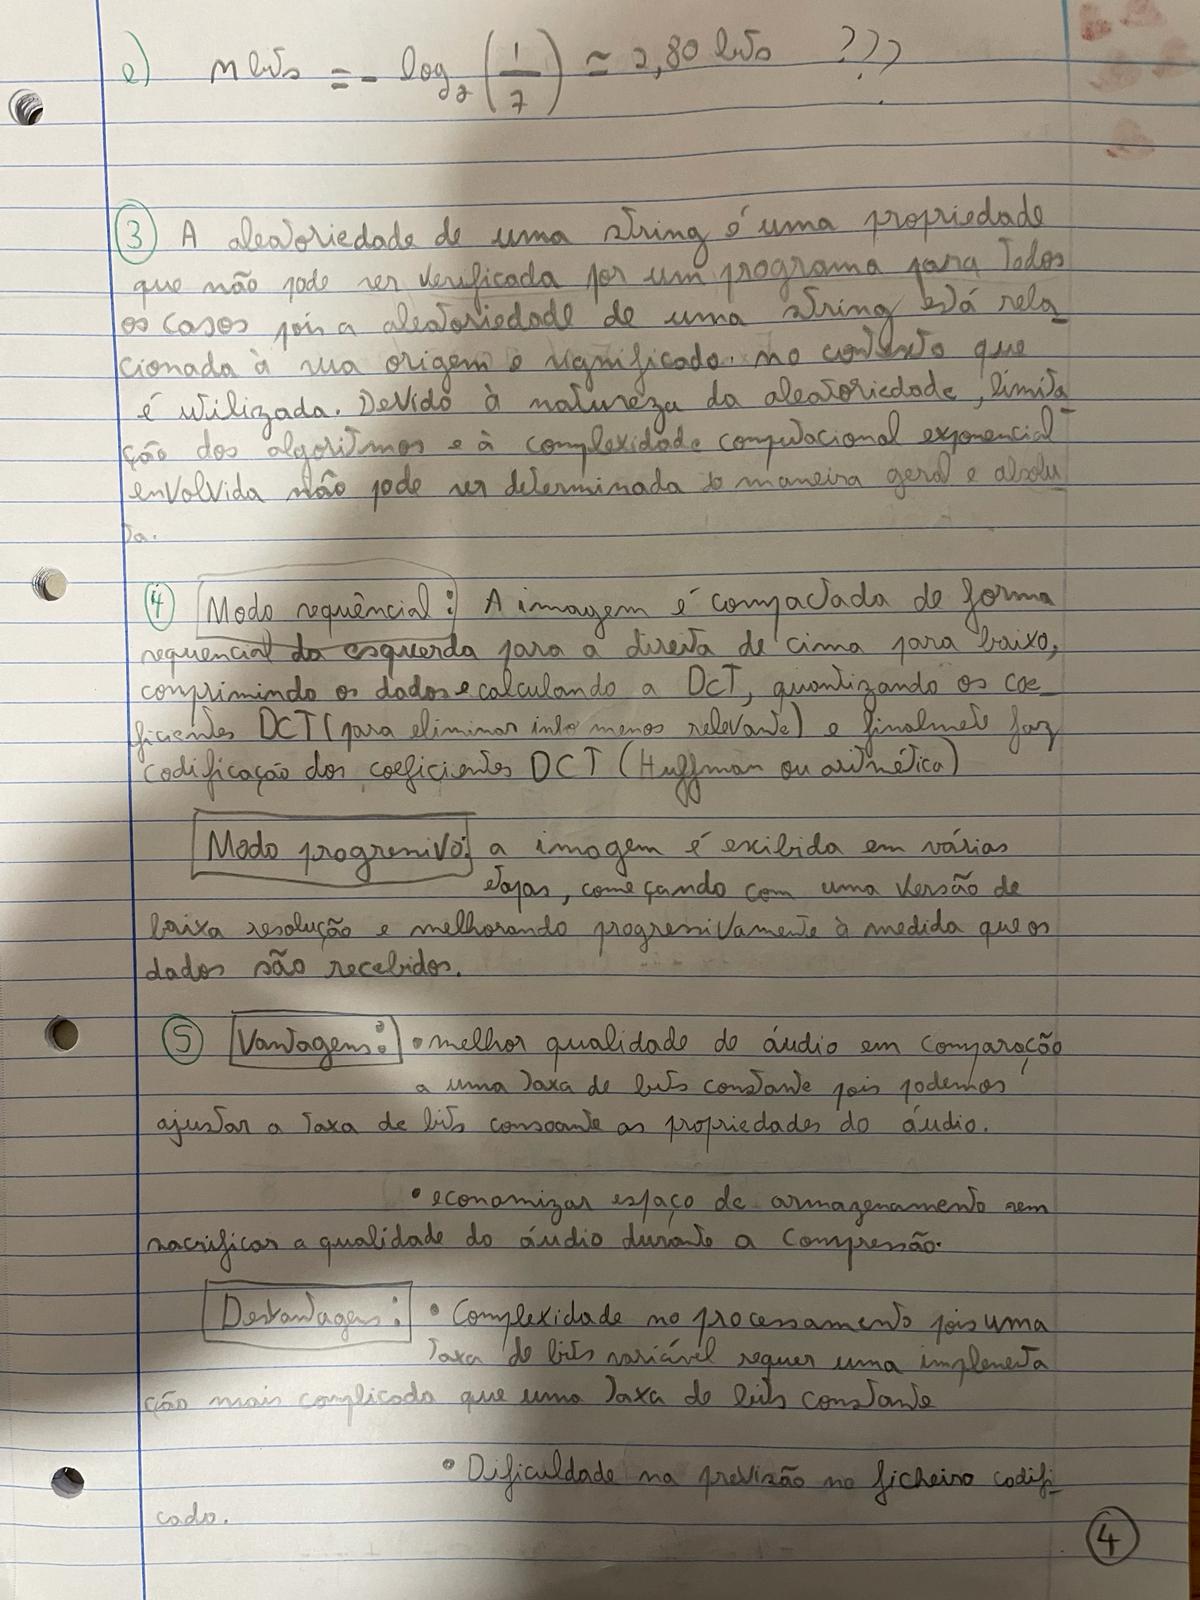 e) n bits = - log₂ (1/7) ≃ 2,80 bits ???
③ A aleatoriedade de uma string é uma propriedade
que não pode ser verificada por um programa para todos
os casos pois a aleatoriedade de uma string está rela_
cionada à sua origem e significado no contexto que
é utilizada. Devido à natureza da aleatoriedade, limita_
ção dos algoritmos e à complexidade computacional exponencial
envolvida não pode ser determinada de maneira geral e absolu_
ta.
④ Modo sequêncial: A imagem é compactada de forma
sequencial da esquerda para a direita de cima para baixo,
comprimindo os dados e calculando a DCT, quantizando os coe_
ficientes DCT (para eliminar info menos relevante) e finalmete faz
codificação dos coeficientes DCT (Huffman ou aritmética)
Modo progressivo: a imagem é exibida em várias
etapas, começando com uma versão de
baixa resolução e melhorando progressivamente à medida que os
dados são recebidos.
⑤ Vantagens: • melhor qualidade de áudio em comparação
a uma taxa de bits constante pois podemos
ajustar a taxa de bits consoante as propriedades do áudio.
• economizar espaço de armazenamento sem
sacrificar a qualidade do áudio durante a compressão.
Desvantagens: • Complexidade no processamento pois uma
taxa de bits variável requer uma implementa
ção mais complicada que uma taxa de bits constante
• Dificuldade na previsão no ficheiro codifi_
cado.
④